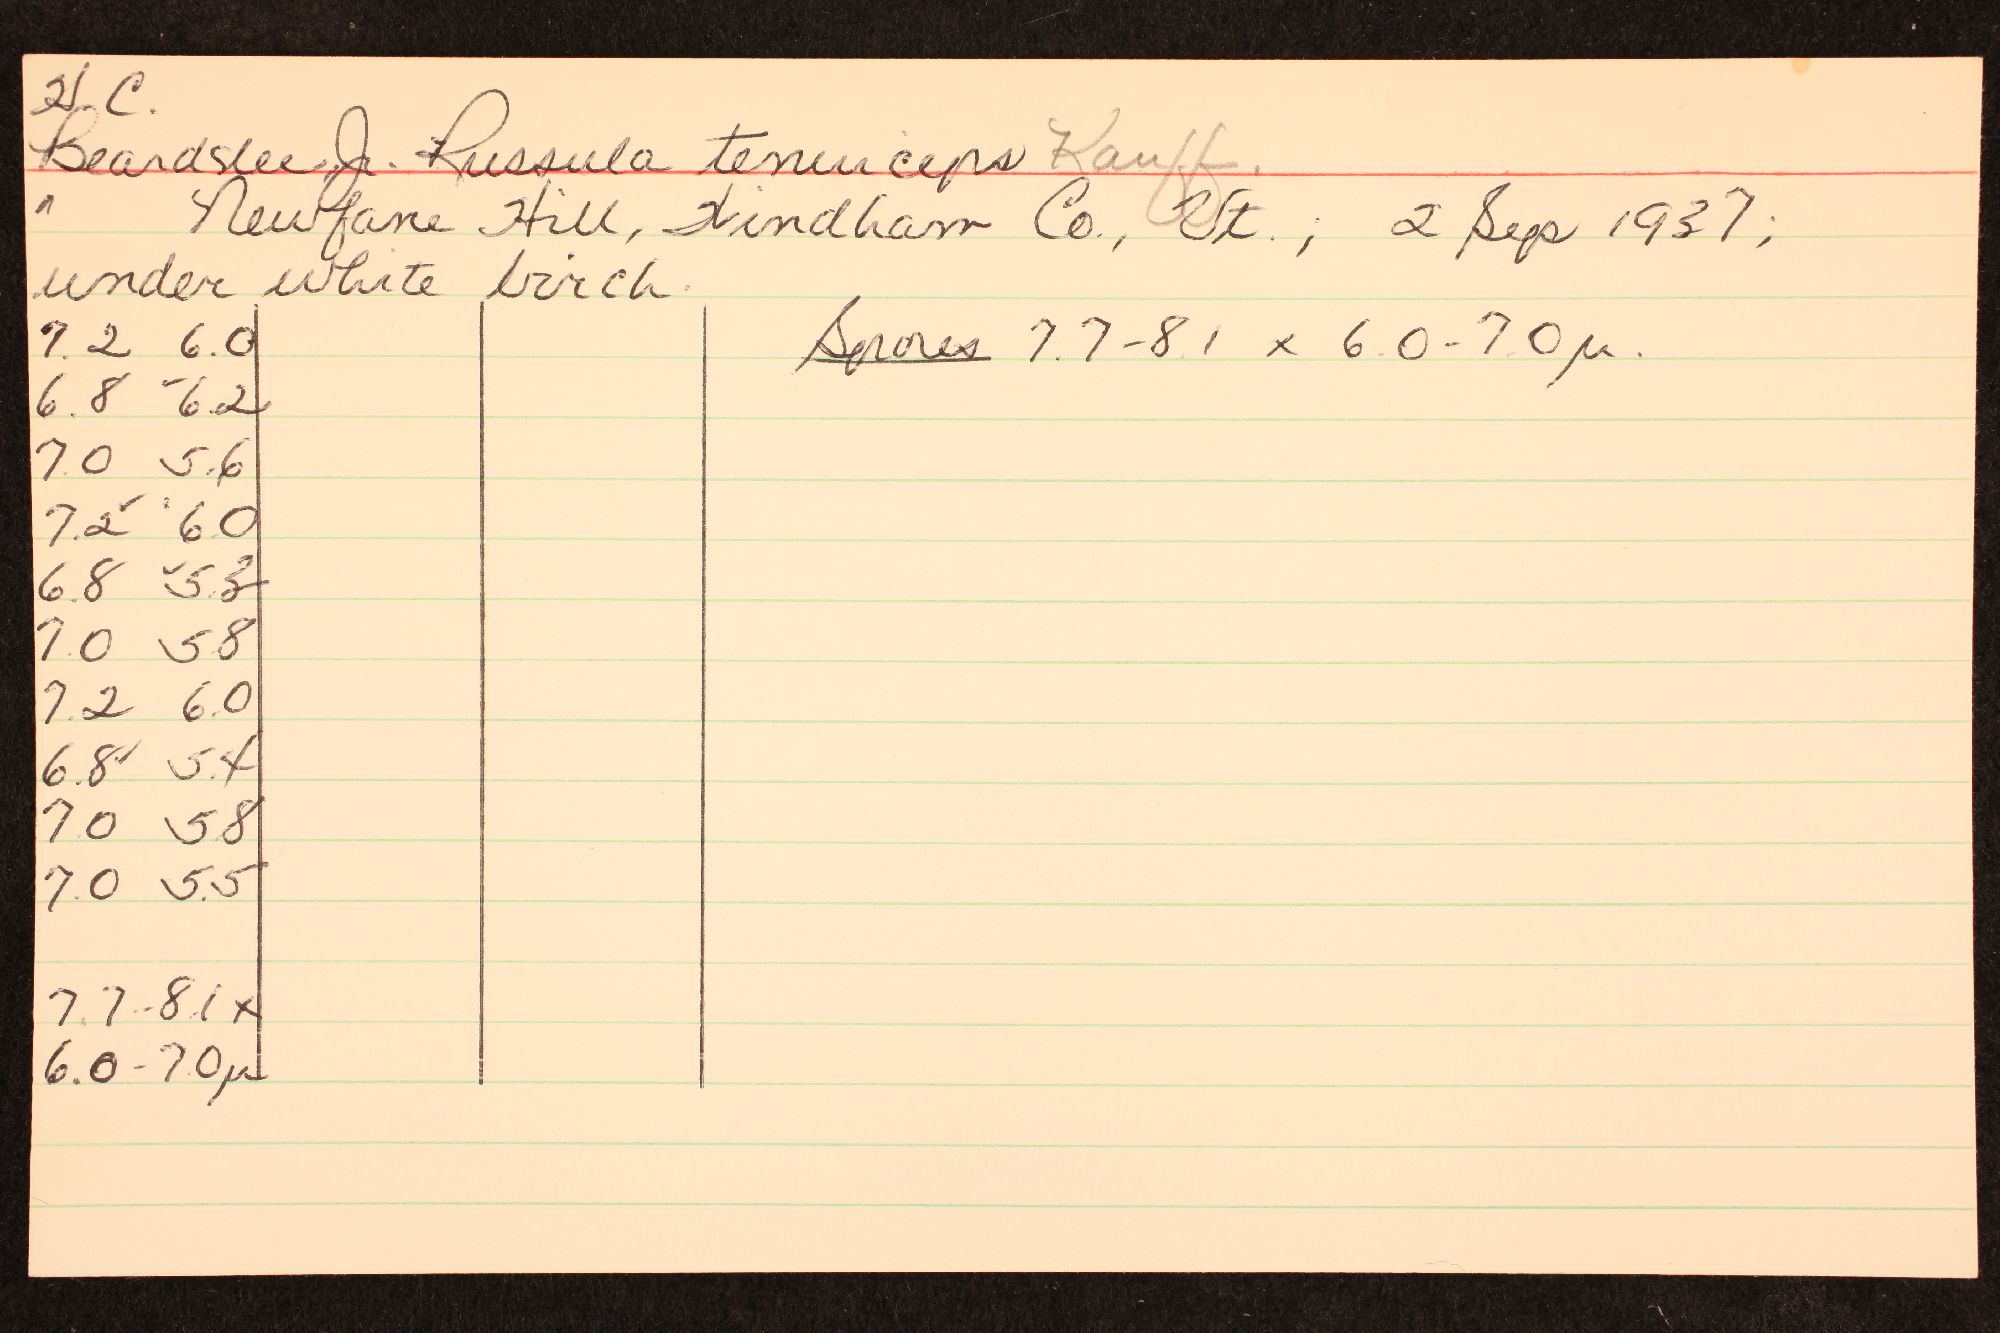 H. C.
Beardslee Jr. Russula tenuiceps Kauff.
" Newfane Hill, Windham Co., Vt.; 2 Sep 1937;
under white birch.
7.2 6.0
6.8 6.2
7.0 5.6
7.2 6.0
6.8 5.3
7.0 5.8
7.2 6.0
6.8 5.4
7.0 5.8
7.0 5.5
7.7-8.1 x
6.0-7.0µ
Spores 7.7-8.1 x 6.0-7.0µ.